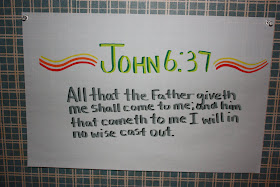 John 6:37
All that the Father giveth
me shall come to me; and him
that cometh to me I will in
no wise cast out.